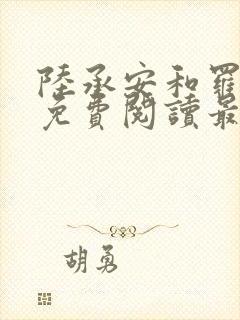 陸承安和羅
免費閱讀最
胡勇